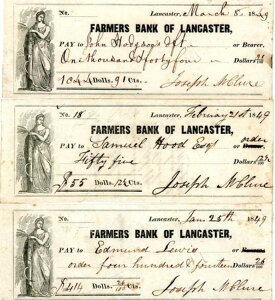 No. Lancaster, March 8, 1849
FARMERS BANK OF LANCASTER,
PAY to John Hodgson Esq or Bearer,
One thousand & forty four Dollars
1044 Dolls. 91 Cts. Joseph McClure
No. 18 Lancaster, February 21st 1849
FARMERS BANK OF LANCASTER,
PAY to Samuel Hood Esq or order
Fifty five Dollars
$55 Dolls. 124 Cts. Joseph McClure
No. Lancaster, Jan. 25th 1849
FARMERS BANK OF LANCASTER,
PAY to Edmund Lewis or
order four hundred & fourteen Dollars 26
$414 Dolls. 26 Cts. Joseph McClure